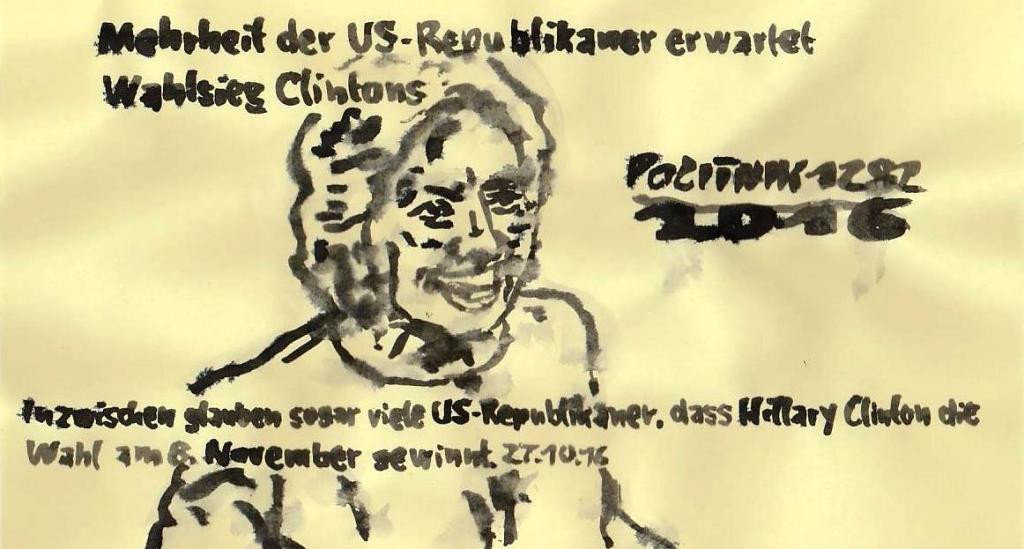 Mehrheit der US-Republikaner erwartet
Wahlsieg Clintons
POLITNIK 1282
2016
Inzwischen glauben sogar viele US-Republikaner, dass Hillary Clinton die
Wahl am 8. November gewinnt. 27.10.16